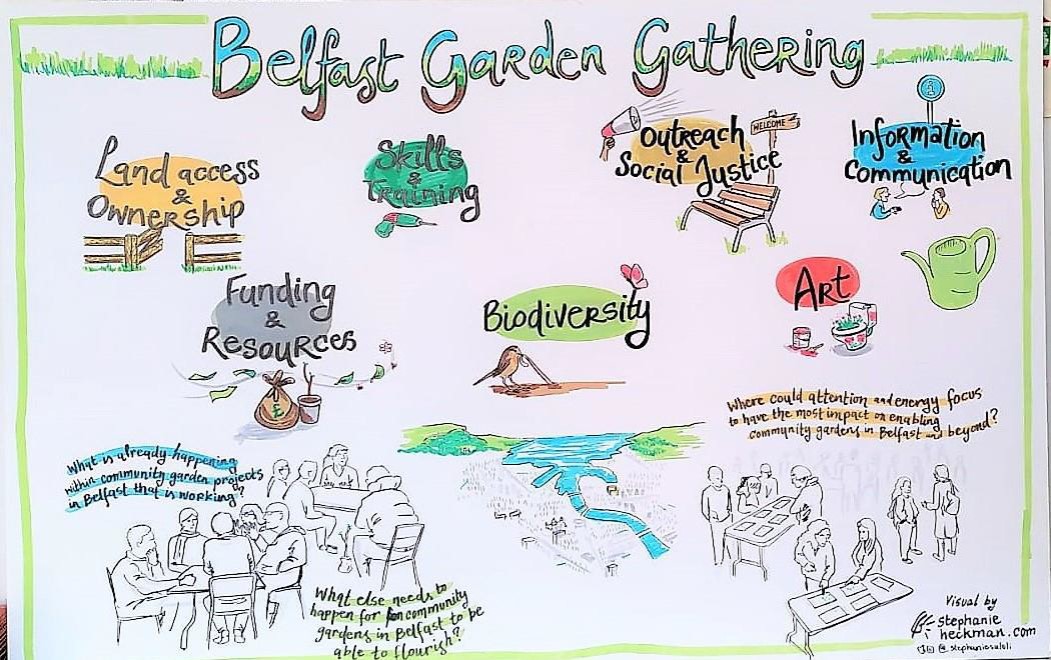 Belfast Garden Gathering
Land access
&
Ownership
Skills
&
Training
Outreach
&
Social Justice
WELCOME
i
Information
&
Communication
Funding
&
Resources
£
Biodiversity
Art
Where could attention and energy focus
to have the most impact on enabling
community gardens in Belfast and beyond?
What is already happening
within community garden projects
in Belfast that is working?
What else needs to
happen for community
gardens in Belfast to be
able to flourish?
Visual by
stephanie
heckman.com